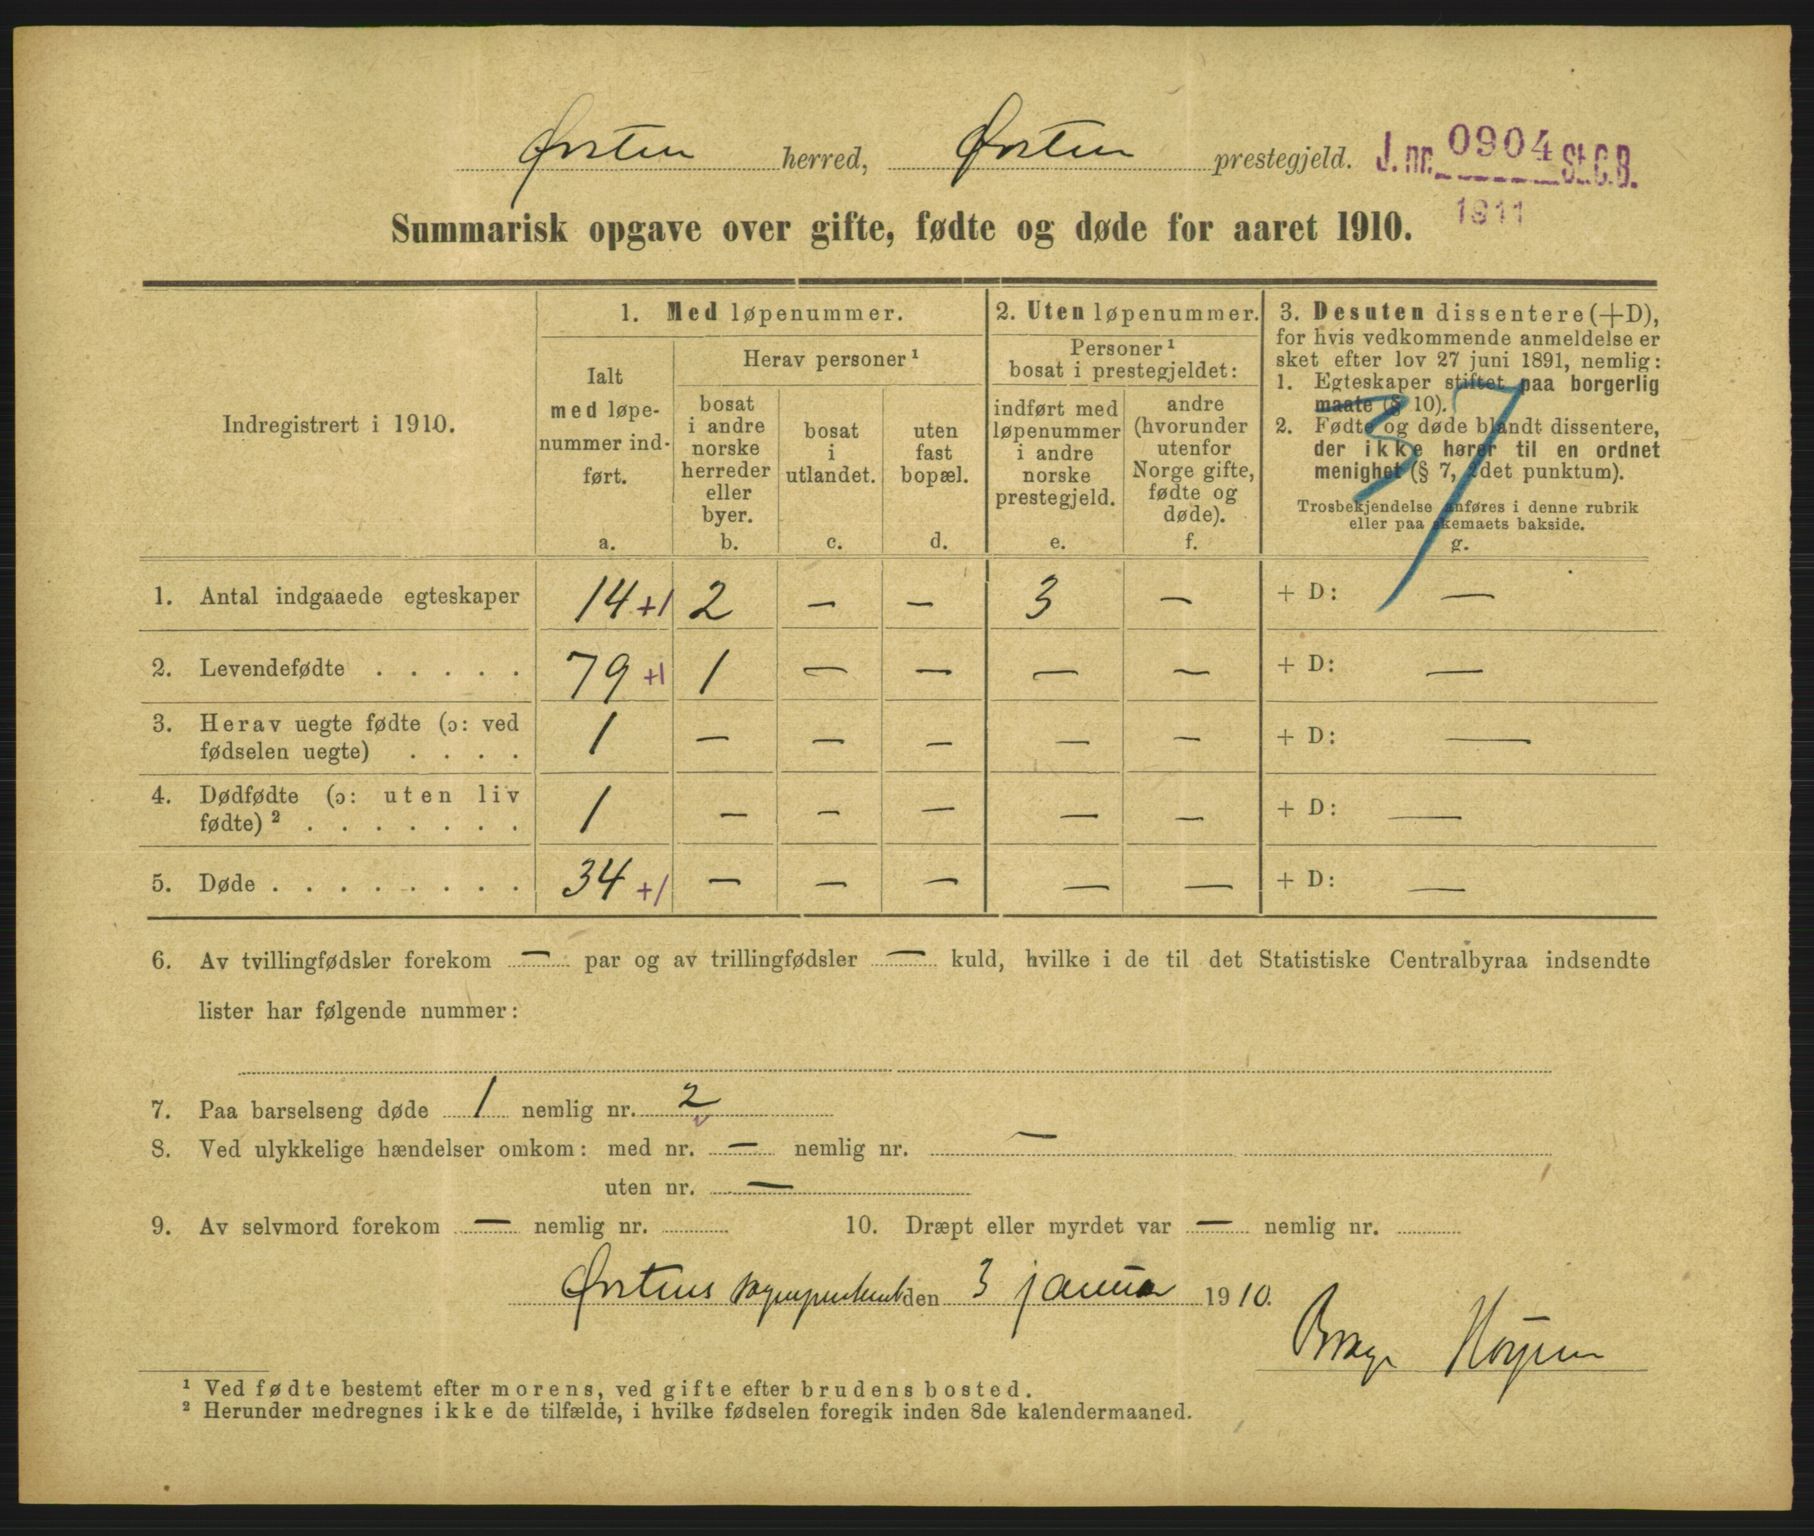 Ørsten herred, Ørsten prestegjeld. J. nr. 0904 St.C.B.
1911
Summarisk opgave over gifte, fødte og døde for aaret 1910.
Indregistrert i 1910.
1. Med løpenummer.
Ialt
med løpe-
nummer ind-
ført.
a.
Herav personer ¹
bosat
i andre
norske
herreder
eller
byer.
b.
bosat
i
utlandet.
c.
uten
fast
bopæl.
d.
2. Uten løpenummer.
Personer ¹
bosat i prestegjeldet:
indført med
løpenummer
i andre
norske
prestegjeld.
e.
andre
(hvorunder
utenfor
Norge gifte,
fødte og
døde).
f.
3. Desuten dissentere (+D),
for hvis vedkommende anmeldelse er
sket efter lov 27 juni 1891, nemlig:
1. Egteskaper stiftet paa borgerlig
maate (§ 10).
2. Fødte og døde blandt dissentere,
der ikke hører til en ordnet
menighet (§ 7, 2det punktum).
Trosbekjendelse anføres i denne rubrik
eller paa skemaets bakside.
g.
37
1. Antal indgaaede egteskaper 14 +1 2 — — 3 — + D: —
2. Levendefødte . . . . . 79 +1 1 — — — — + D: —
3. Herav uegte fødte (ɔ: ved
fødselen uegte) . . . . 1 — — — — — + D: —
4. Dødfødte (ɔ: uten liv
fødte) ² . . . . . . . 1 — — — — — + D: —
5. Døde . . . . . . . . 34 +1 — — — — — + D: —
6. Av tvillingfødsler forekom — par og av trillingfødsler — kuld, hvilke i de til det Statistiske Centralbyraa indsendte
lister har følgende nummer:
7. Paa barselseng døde 1 nemlig nr. 2
8. Ved ulykkelige hændelser omkom: med nr. — nemlig nr. —
uten nr. —
9. Av selvmord forekom — nemlig nr. 10. Dræpt eller myrdet var — nemlig nr.
Ørstens den 3 januar 1910.
¹ Ved fødte bestemt efter morens, ved gifte efter brudens bosted.
² Herunder medregnes ikke de tilfælde, i hvilke fødselen foregik inden 8de kalendermaaned.